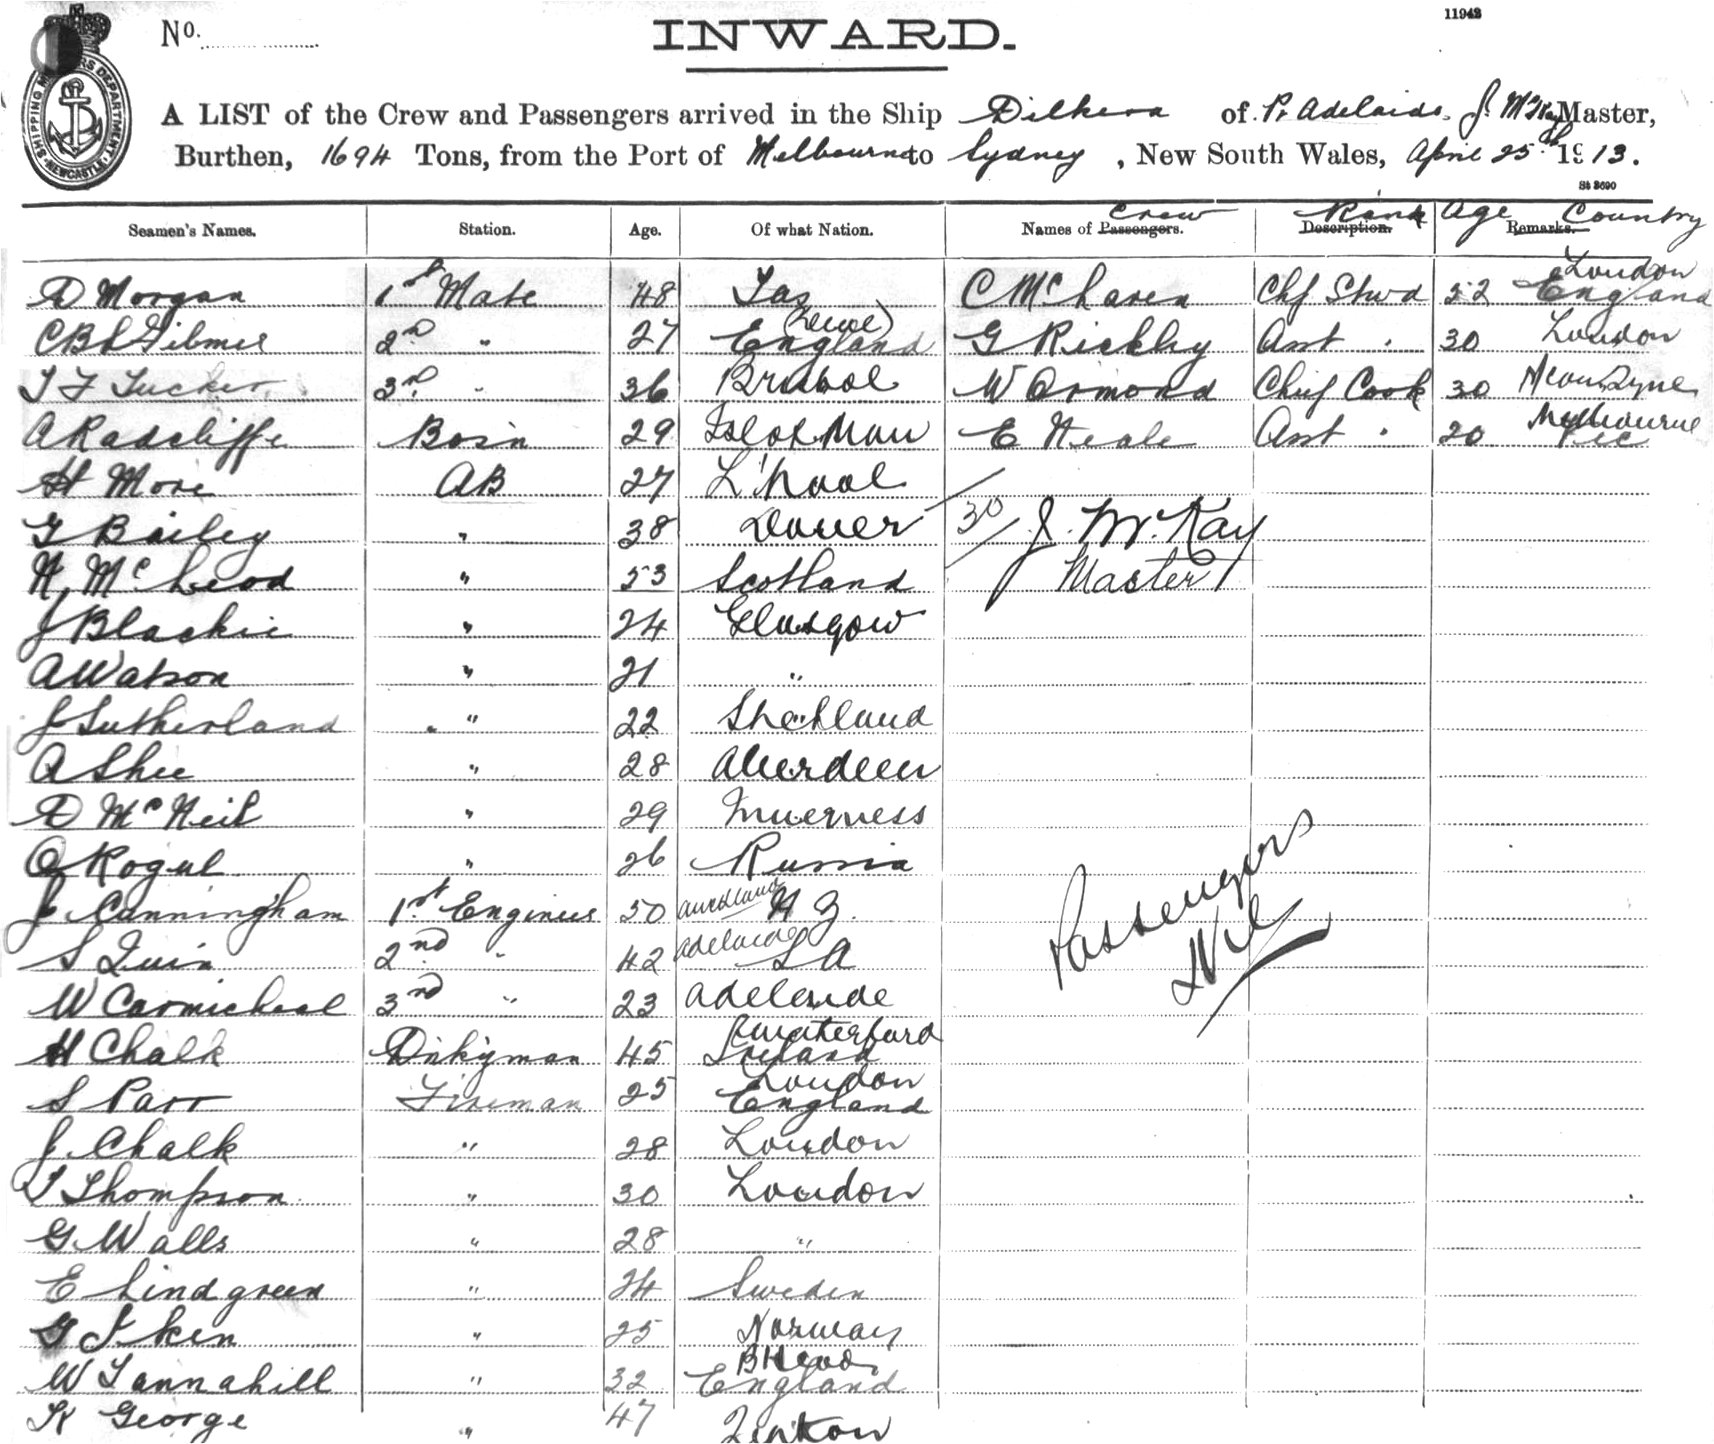 No.
INWARD.
11942
SHIPPING MASTERS DEPARTMENT. NEWCASTLE.
A LIST of the Crew and Passengers arrived in the Ship Dilkera of Pt Adelaide. J. McKay Master,
Burthen, 1694 Tons, from the Port of Melbourne to Sydney, New South Wales, April 25th 1913.
St 3690
Seamen's Names. Station. Age. Of what Nation. Names of Passengers. Crew Description. Rank Age Remarks. Country
D Morgan 1st Mate 48 Tas C McLaren Chf Stwd 52 London England
C B L Gibmer 2nd " 27 England G Rickby Asst " 30 London
T F Tucker 3rd " 36 Bristol W Ormond Chief Cook 30 Tyne
A Radcliffe Bosn 29 Isl of Man E Neale Asst " 20 Melbourne Vic
H More AB 27 L'pool
G Bailey " 38 Dover 30 J. McKay
N McLeod " 53 Scotland Master
J Blackie " 24 Glasgow
A Watson " 21 "
J Sutherland " 22 Shetland
A Shee " 28 Aberdeen
D McNeil " 29 Inverness
O Rogul " 26 Russia
J Cunningham 1st Engineer 50 Auckland N Z.
S Quin 2nd " 42 Adelaide S A
W Carmicheal 3rd " 23 Adelaide
Passengers
Nil
H Chalk Dnkyman 45 Waterford Ireland
S Parr Fireman 25 London England
J Chalk " 28 London
T Thompson " 30 London
G Walls " 28 "
E Lindgreen " 24 Sweden
G Isken " 25 Norway
W Tannahill " 32 England
K George " 47